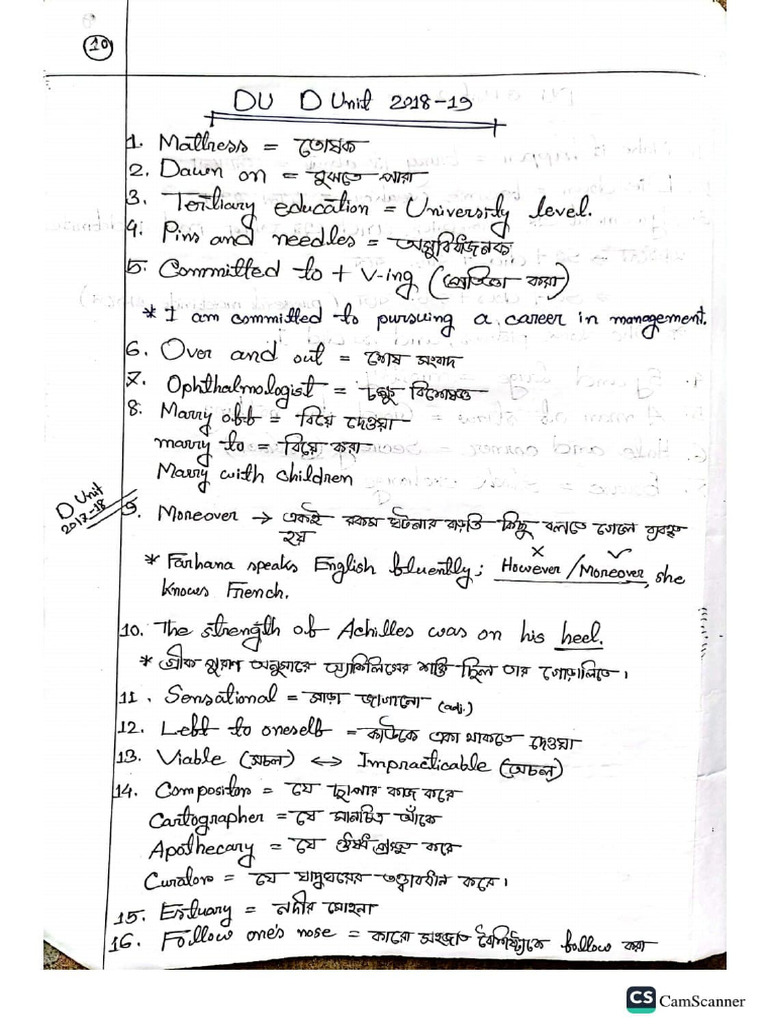 10
DU D Unit 2018-19
1. Mattress = তোষক
2. Dawn on = বুঝতে পারা
3. Tertiary education = University level.
4. Pins and needles = অসুবিধাজনক
5. Committed to + V-ing (প্রতিজ্ঞা করা)
* I am committed to pursuing a career in management.
6. Over and out = শেষ সংবাদ
7. Ophthalmologist = চক্ষু বিশেষজ্ঞ
8. Marry off = বিয়ে দেওয়া
marry to = বিয়ে করা
Marry with children
D Unit
2017-18
9. Moreover → একই রকম ঘটনার বাড়তি কিছু বলতে গেলে ব্যবহৃত
হয়
* Farhana speaks English fluently; However/Moreover, she
knows French.
10. The strength of Achilles was on his heel.
* গ্রীক পুরাণ অনুসারে অ্যাকিলিসের শক্তি ছিল তার গোড়ালিতে।
11. Sensational = সাড়া জাগানো (adj.)
12. Left to oneself = কাউকে একা থাকতে দেওয়া
13. Viable (সচল) ↔ Impracticable (অচল)
14. Compositor = যে ছাপার কাজ করে
Cartographer = যে মানচিত্র আঁকে
Apothecary = যে ঔষধ প্রস্তুত করে
Curator = যে যাদুঘরের তত্ত্বাবধান করে।
15. Estuary = নদীর মোহনা
16. Follow one's nose = কারো সহজাত বৈশিষ্ট্যকে follow করা
CS CamScanner